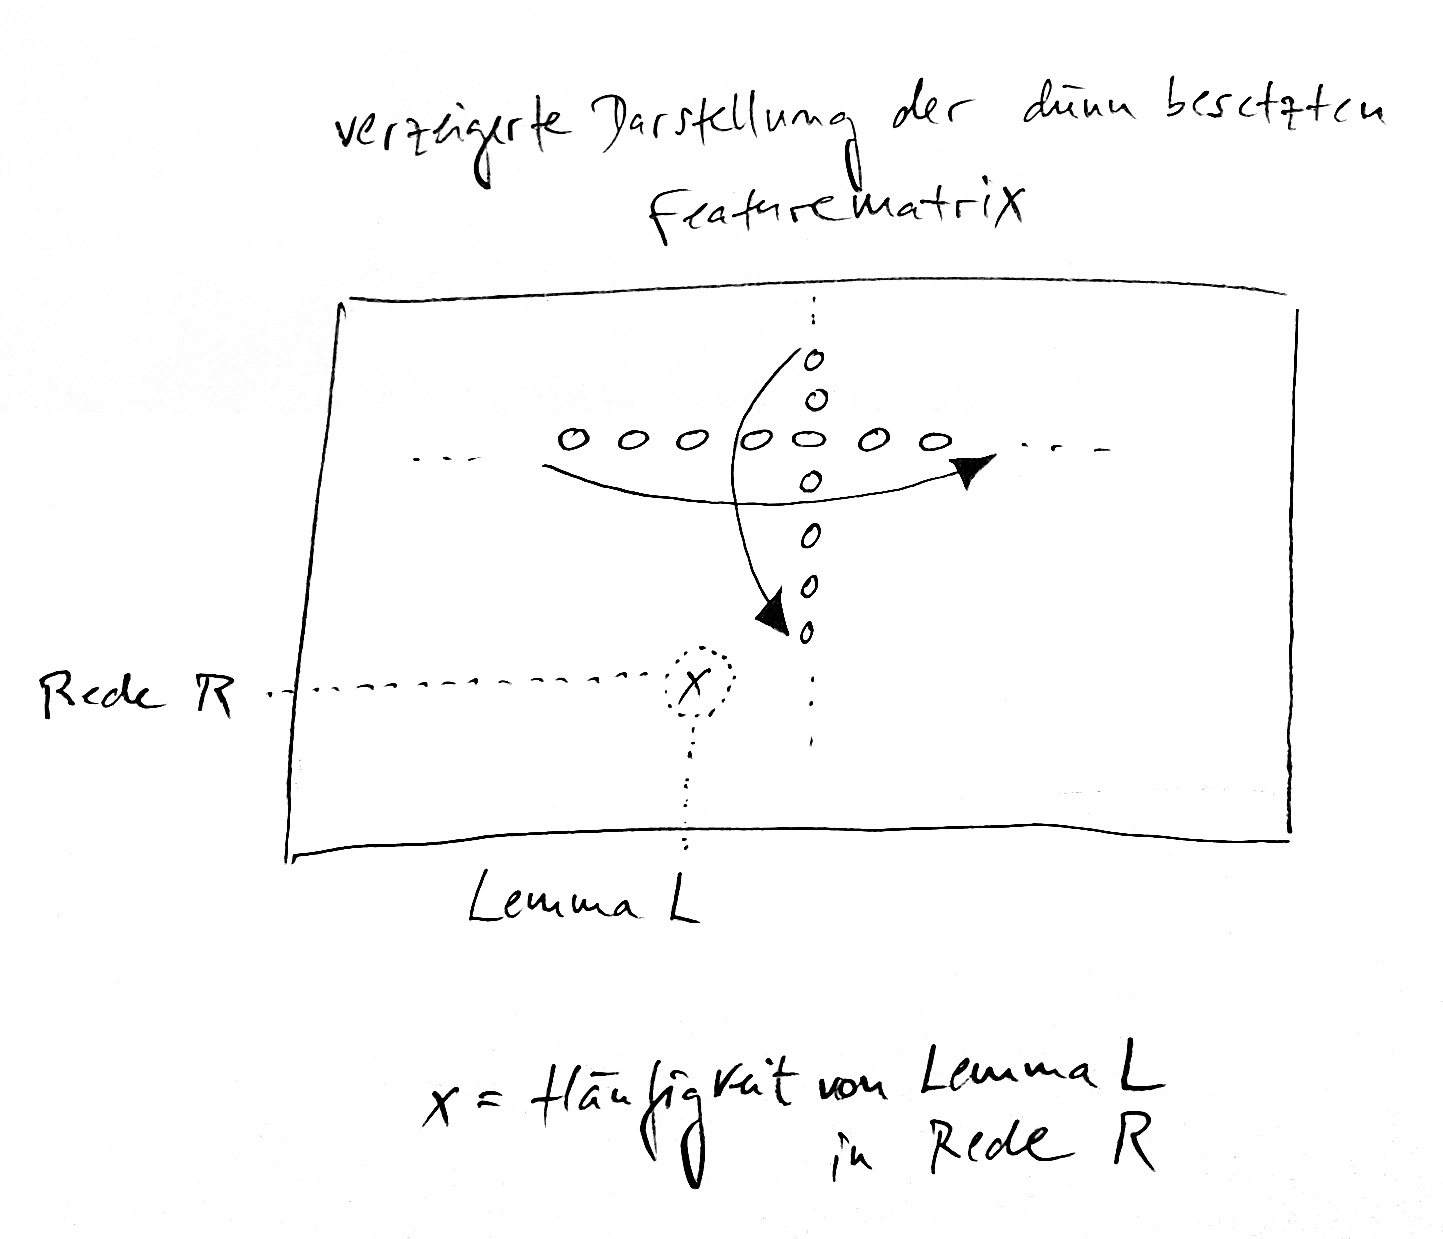 verzeigerte Darstellung der dünn besetzten
Featurematrix
0
0
0 0 0 0 0 0 0
0
0
0
0
Rede R
x
Lemma L
x = Häufigkeit von Lemma L
in Rede R